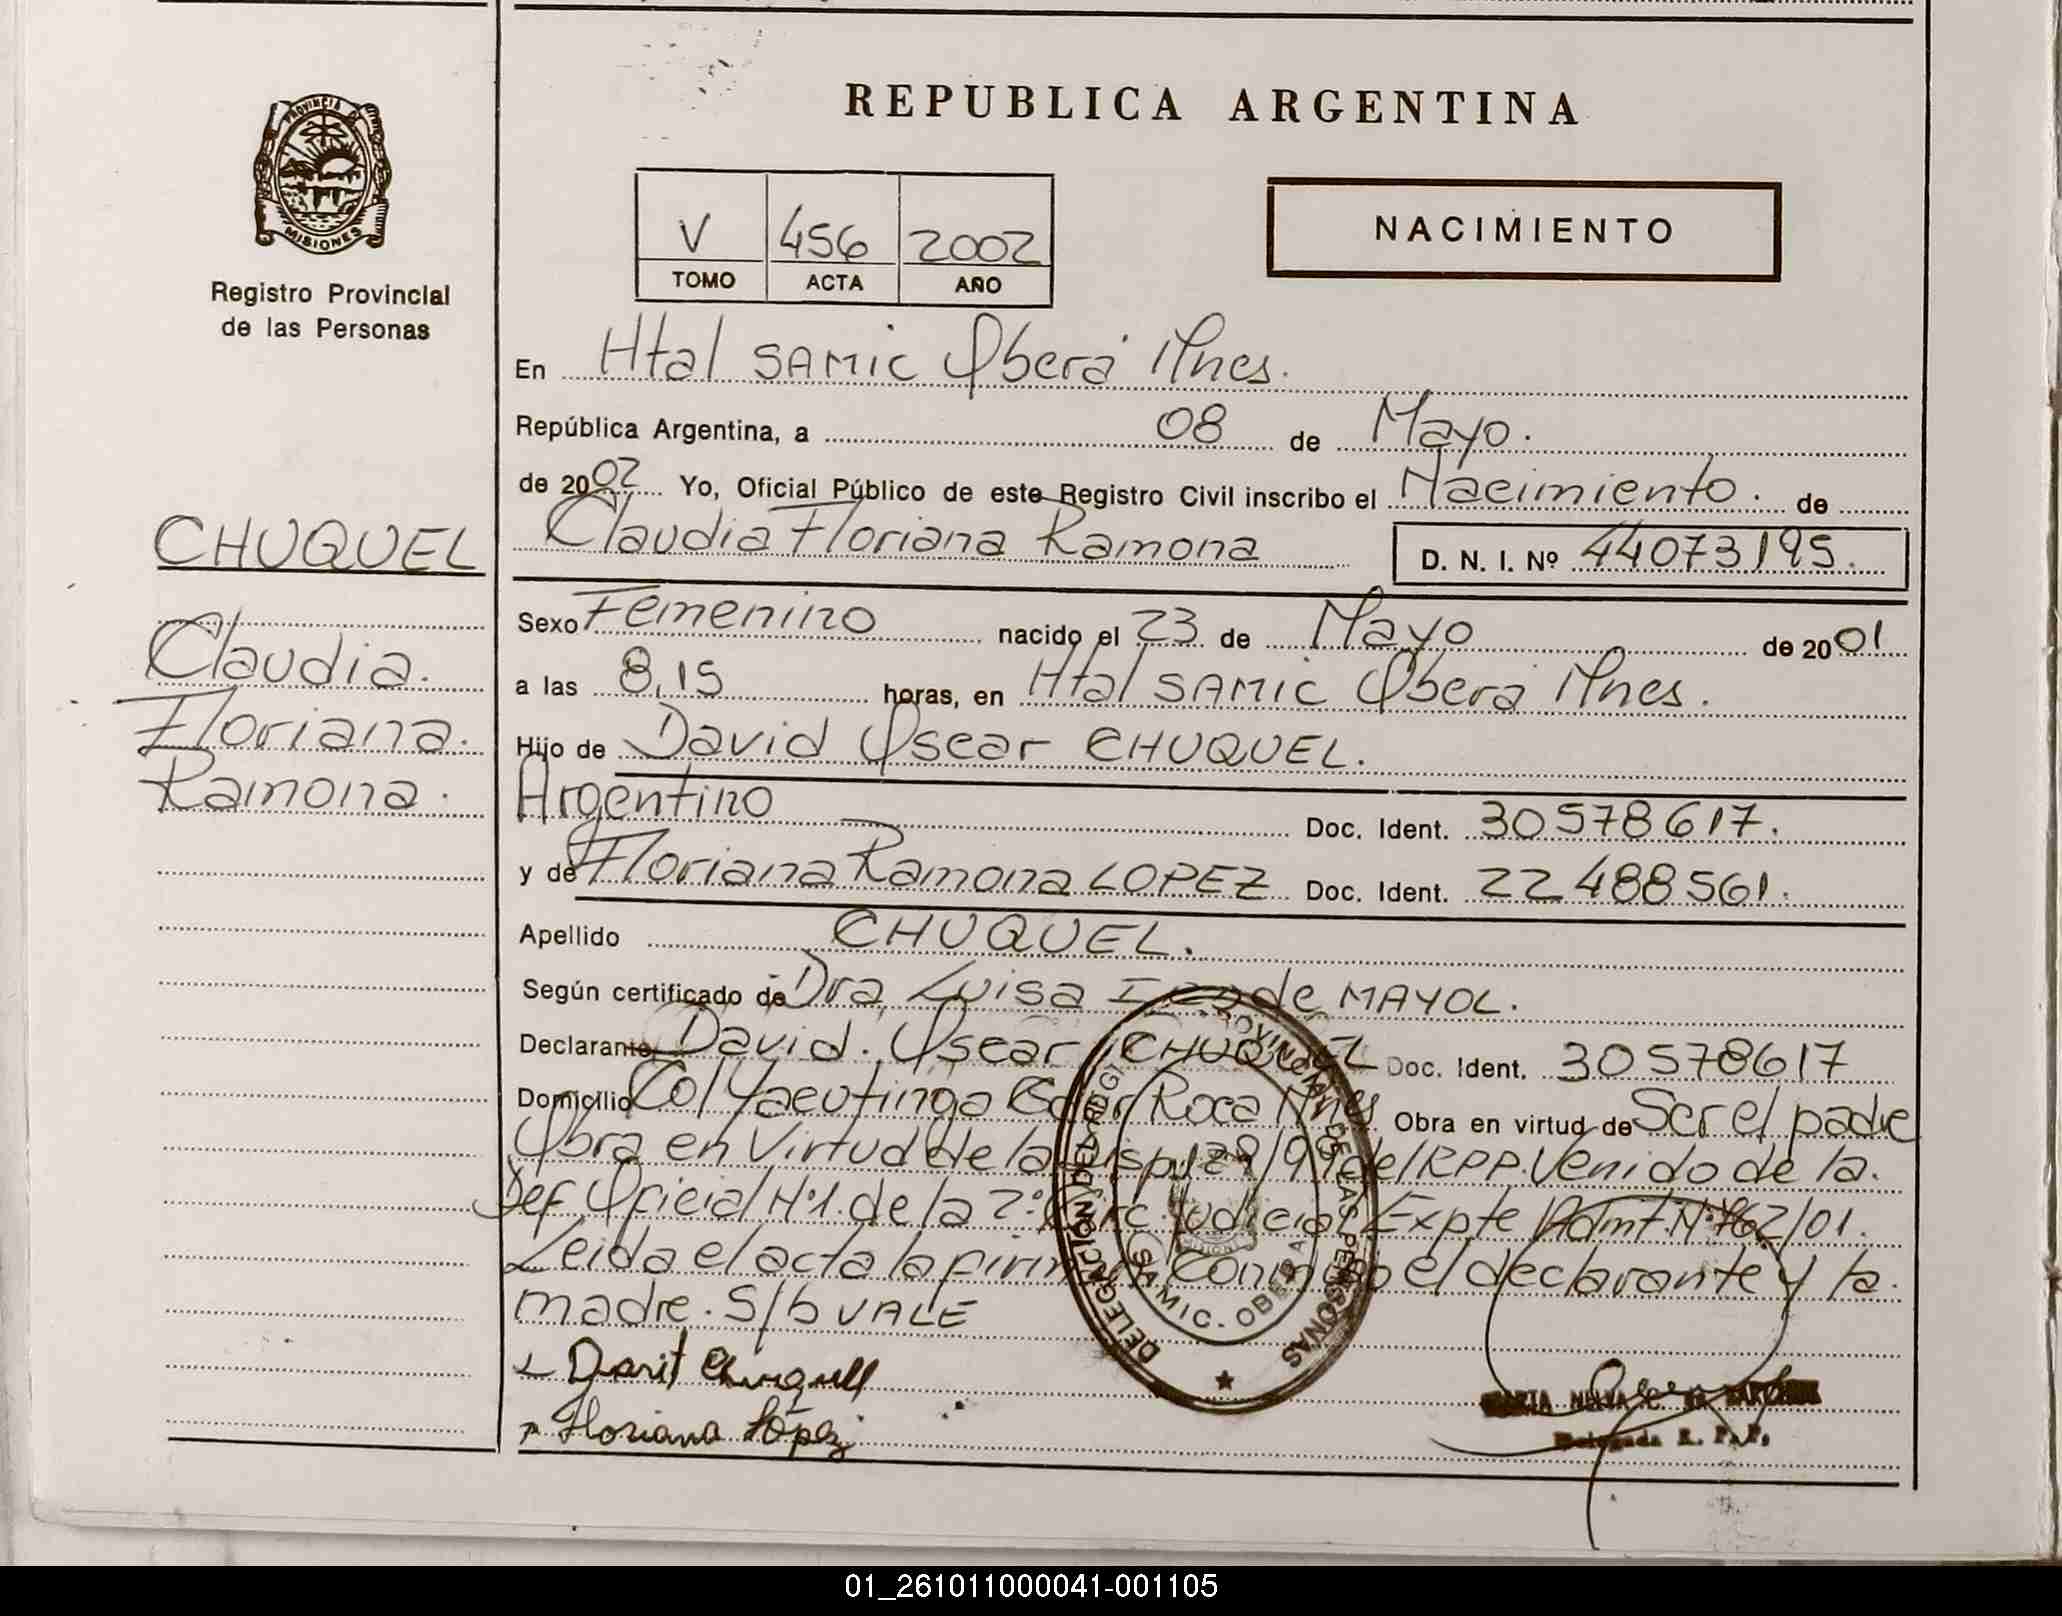 REPUBLICA ARGENTINA
PROVINCIA DE
MISIONES
Registro Provincial
de las Personas
V 456 2002
TOMO ACTA AÑO
NACIMIENTO
En Htal SAMIC Oberá Mnes.
República Argentina, a 08 de Mayo.
de 2002 Yo, Oficial Público de este Registro Civil inscribo el Nacimiento. de
Claudia Floriana Ramona D. N. I. Nº 44073195.
CHUQUEL
Claudia.
Floriana.
Ramona.
Sexo Femenino nacido el 23 de Mayo de 2001
a las 8,15 horas, en Htal SAMIC Oberá Mnes.
Hijo de David Oscar CHUQUEL.
Argentino Doc. Ident. 30578617.
y de Floriana Ramona LOPEZ Doc. Ident. 22488561.
Apellido CHUQUEL.
Según certificado de Dra Luisa de MAYOL.
Declarante David. Oscar CHUQUEL Doc. Ident. 30578617
Domicilio Col Yacutinga Gdor Roca Mnes Obra en virtud de Ser el padre
Obra en Virtud de la Disp. 129/99 del RPP. Venido de la.
Def Oficial Nº1. de la 2º Circ. Judicial Expte Admt. Nº 762/01.
Leida el acta la firman Conmigo el declarante y la.
madre. S/b VALE
DELEGACION DEL REGISTRO PROVINCIAL DE LAS PERSONAS
SAMIC. OBERA
Davit Chuquell
Floriana López
Delegada R. P. P.
01_261011000041-001105